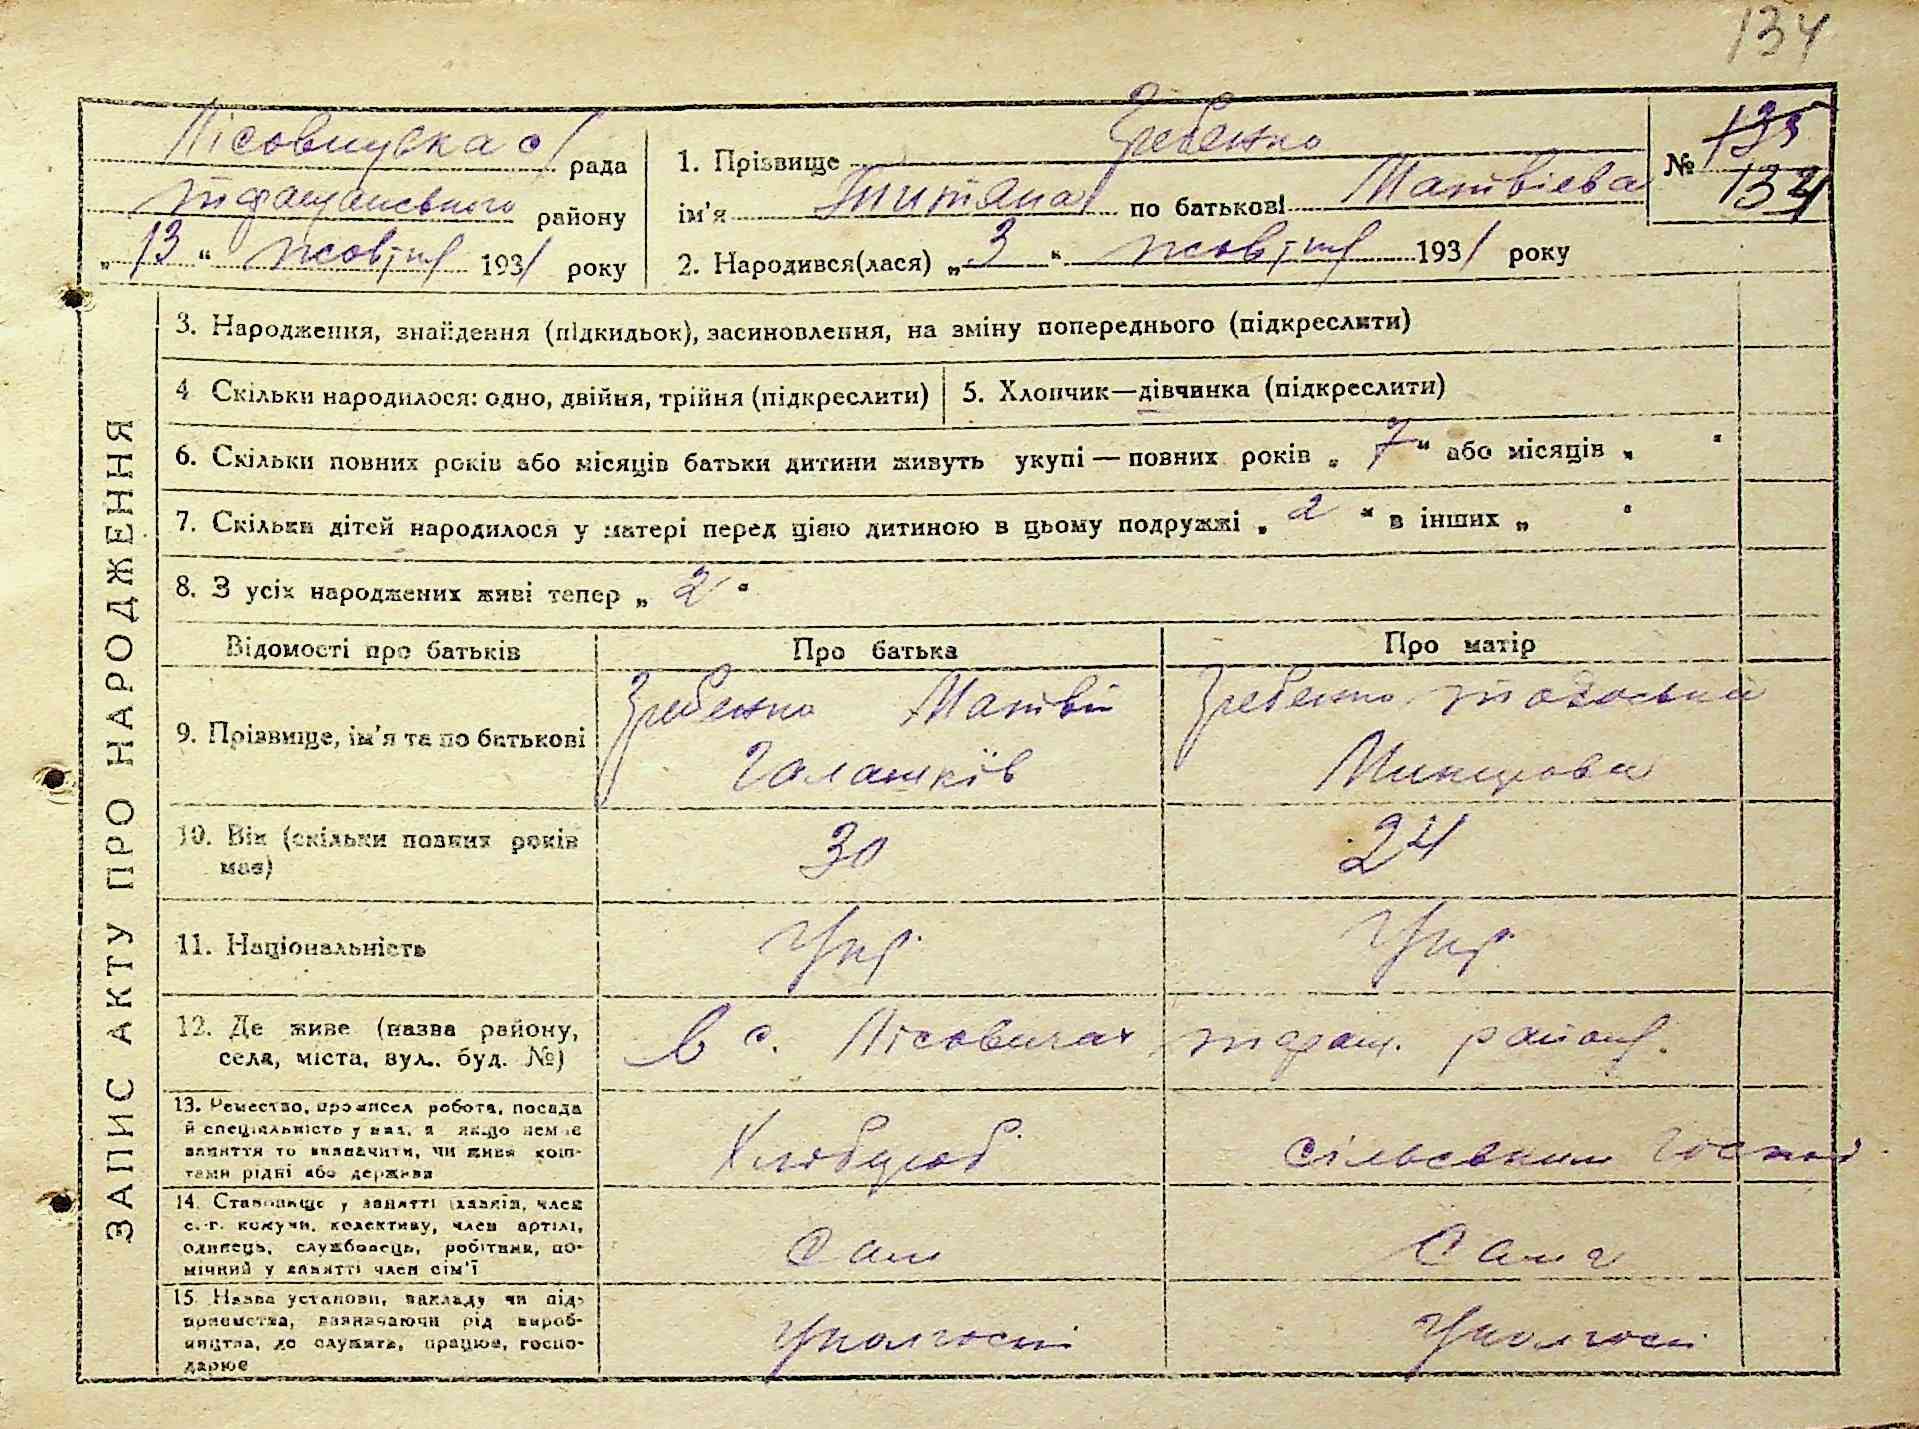 134
Лісовицька с/рада
Таращанського району
„13“ жовтня 1931 року
1. Прізвище Гребенко
ім'я Титяна по батькові Матвієва
2. Народився(лася) „3“ жовтня 1931 року
№ 135
134
ЗАПИС АКТУ ПРО НАРОДЖЕННЯ
3. Народження, знайдення (підкидьок), засиновлення, на зміну попереднього (підкреслити)
4 Скільки народилося: одно, двійня, трійня (підкреслити)
5. Хлопчик—дівчинка (підкреслити)
6. Скільки повних років або місяців батьки дитини живуть укупі — повних років „7“ або місяців „ “
7. Скільки дітей народилося у матері перед цією дитиною в цьому подружжі „2“ в інших „ “
8. З усіх народжених живі тепер „2“
Відомості про батьків
Про батька
Про матір
9. Прізвище, ім'я та по батькові
Гребенко Матвій
Гребенко
10. Вік (скільки повних років
має)
30
24
11. Національність
Укр.
Укр.
12. Де живе (назва району,
села, міста, вул.. буд. №)
в с. Лісовичах
Таращ. району.
13. Ремество, промисел робота, посада
й спеціальність у них, а якщо немає
заняття то визначити, чи живе кош-
тами рідні або держави
Хлібороб
сільським госпо
14. Становище у занятті (хазяїн, член
с.-г. комуни, колективу, член артілі,
одинець, службовець, робітник, по-
мічний у занятті член сім'ї
Сам
Сама
15. Назва установи, закладу чи під-
приємства, зазначаючи рід вироб-
ництва, де служить, працює, госпо-
дарює
У колгоспі
У колгоспі